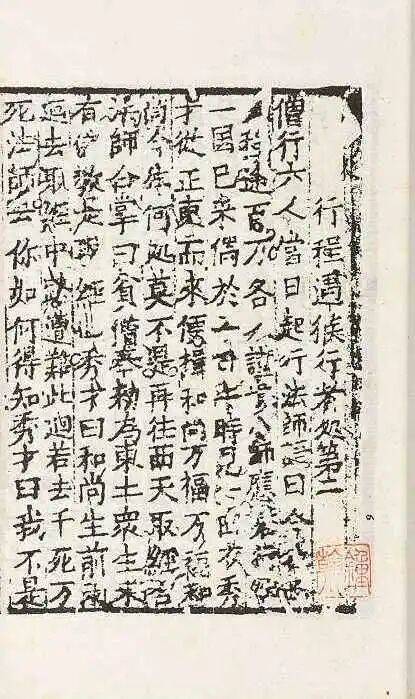 行程遇猴行者処第二
僧行六人當日起行法師語曰
程途百万各人謹慎小師應
一國已來偶於一日午時見一白衣秀
才從正東而來便揖和尚万福万福和
尚今往何処莫不是再往西天取經否
法師合掌曰貧僧奉勑為東土衆生未
有佛教是取經也秀才曰和尚生前兩
迴去取經中路遭難此迴若去千死万
死法師云你如何得知秀才曰我不是